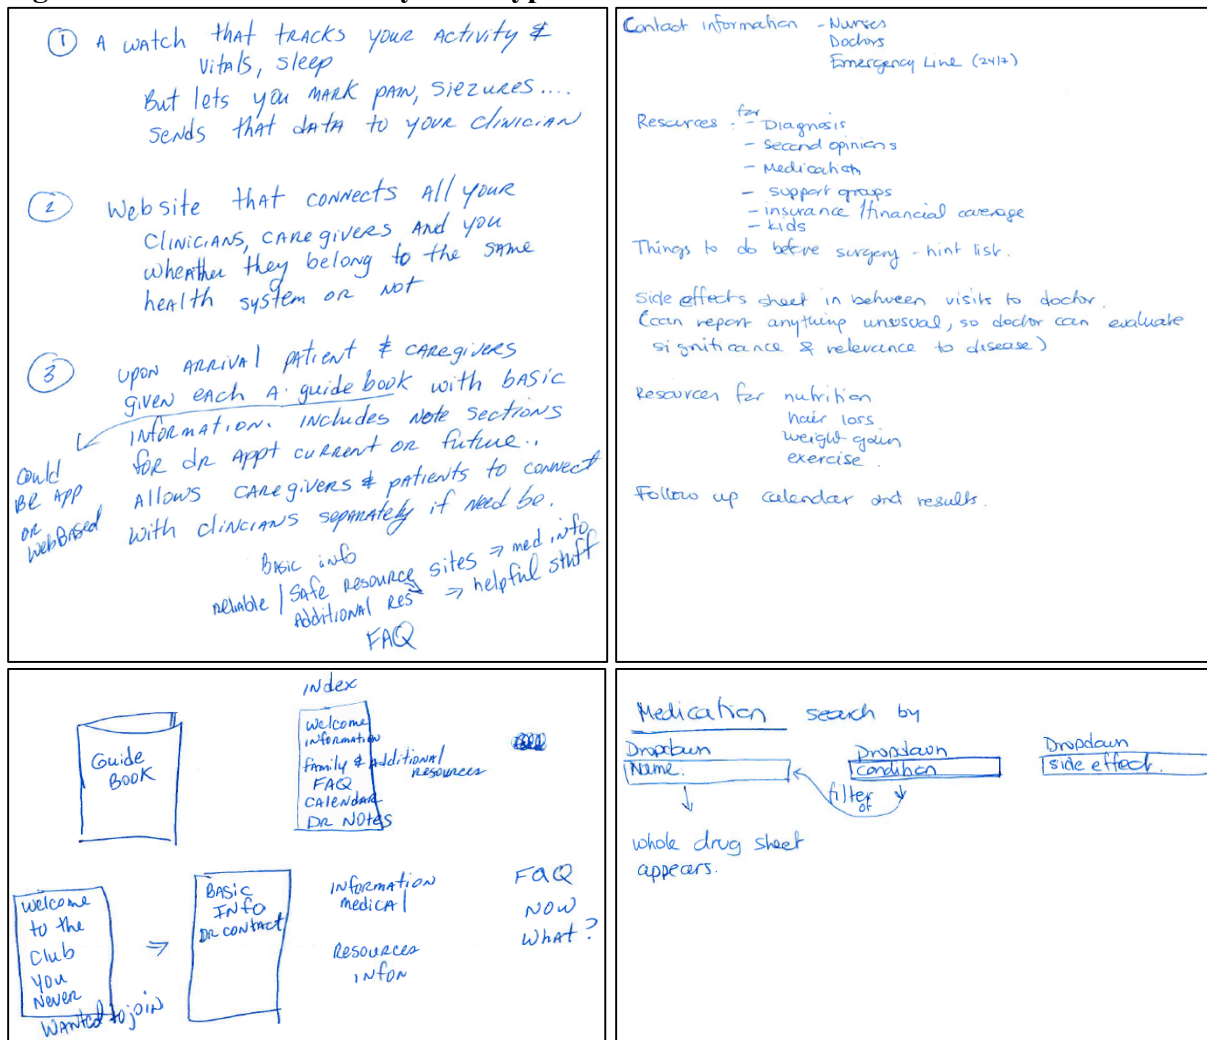 ① A watch that tracks your activity &
vitals, sleep
But lets you mark pain, siezures....
sends that data to your clinician
② Website that connects all your
clinicians, caregivers and you
wheather they belong to the same
health system or not
③ upon arrival patient & caregivers
given each a guide book with basic
information. includes note sections
for dr appt current or future..
allows caregivers & patients to connect
with clincians separately if need be.
Could
be app
or
webbased
Basic info
reliable / safe resource sites ⇒ med info
additional res ⇒ helpful stuff
FAQ
Contact information - Nurses
Doctors
Emergency Line (24/7)
Resources : for - Diagnosis
- second opinions
- Medication
- support groups
- insurance / financial coverage
- kids
Things to do before surgery - hint list.
Side effects sheet in between visits to doctor.
(can report anything unusual, so doctor can evaluate
significance & relevance to disease)
Resources for nutrition
hair loss
weight gain
exercise.
Follow up calendar and results.
Guide
Book
index
Welcome
information
family & additional
resources
FAQ
Calendar
Dr Notes
Welcome
to the
Club
you
Never
wanted to join
⇒
Basic
Info
Dr contact
Information
medical
Resources
infon
FAQ
Now
What?
Medication search by
Dropdown
Name.
Dropdown
condition
Dropdown
side effect.
filter
of
whole drug sheet
appears.